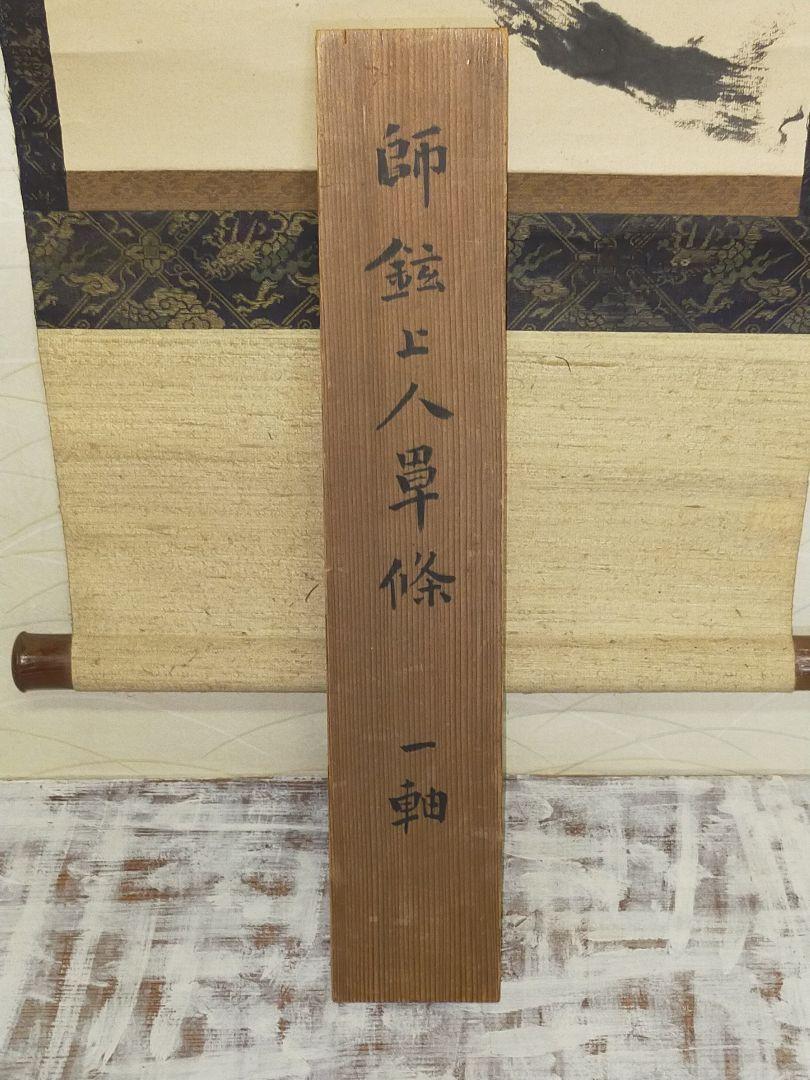 師鉉上人單條
一軸